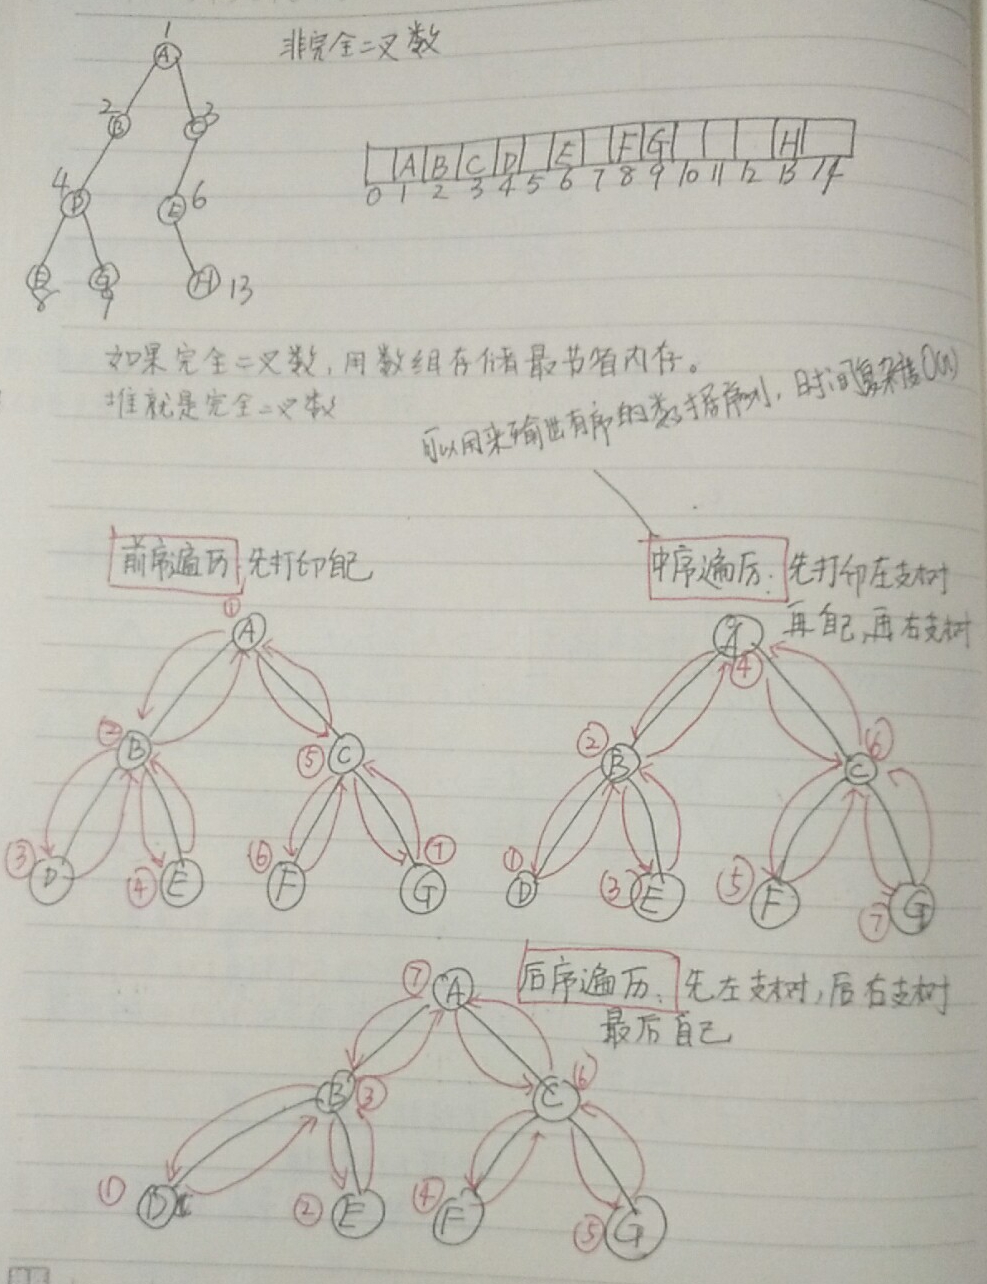 非完全二叉数
1
A
2
B
3
C
4
D
E
6
8
G
9
H
13
A B C D E F G H
0 1 2 3 4 5 6 7 8 9 10 11 12 13 14
如果完全二叉数，用数组存储最节省内存。
堆就是完全二叉数
可以用来输出有序的数据序列，时间复杂度O(n)
前序遍历：先打印自己
① A
② B
⑤ C
③ D
④ E
⑥ F
⑦ G
中序遍历：先打印左支树
再自己，再右支树
A
④
② B
⑥
C
① D
③ E
⑤ F
⑦ G
后序遍历：先左支树，后右支树
最后自己
⑦ A
B ③
C ⑥
① D
② E
④ F
⑤ G